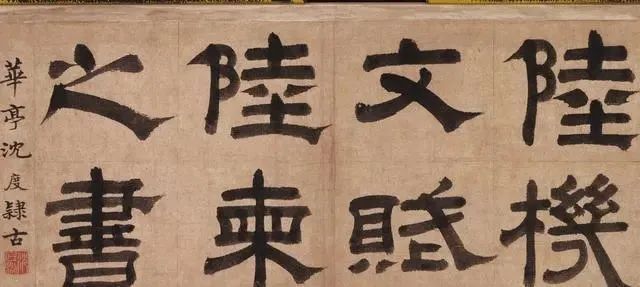 陸機
文賦
陸柬
之書
華亭沈度隸古